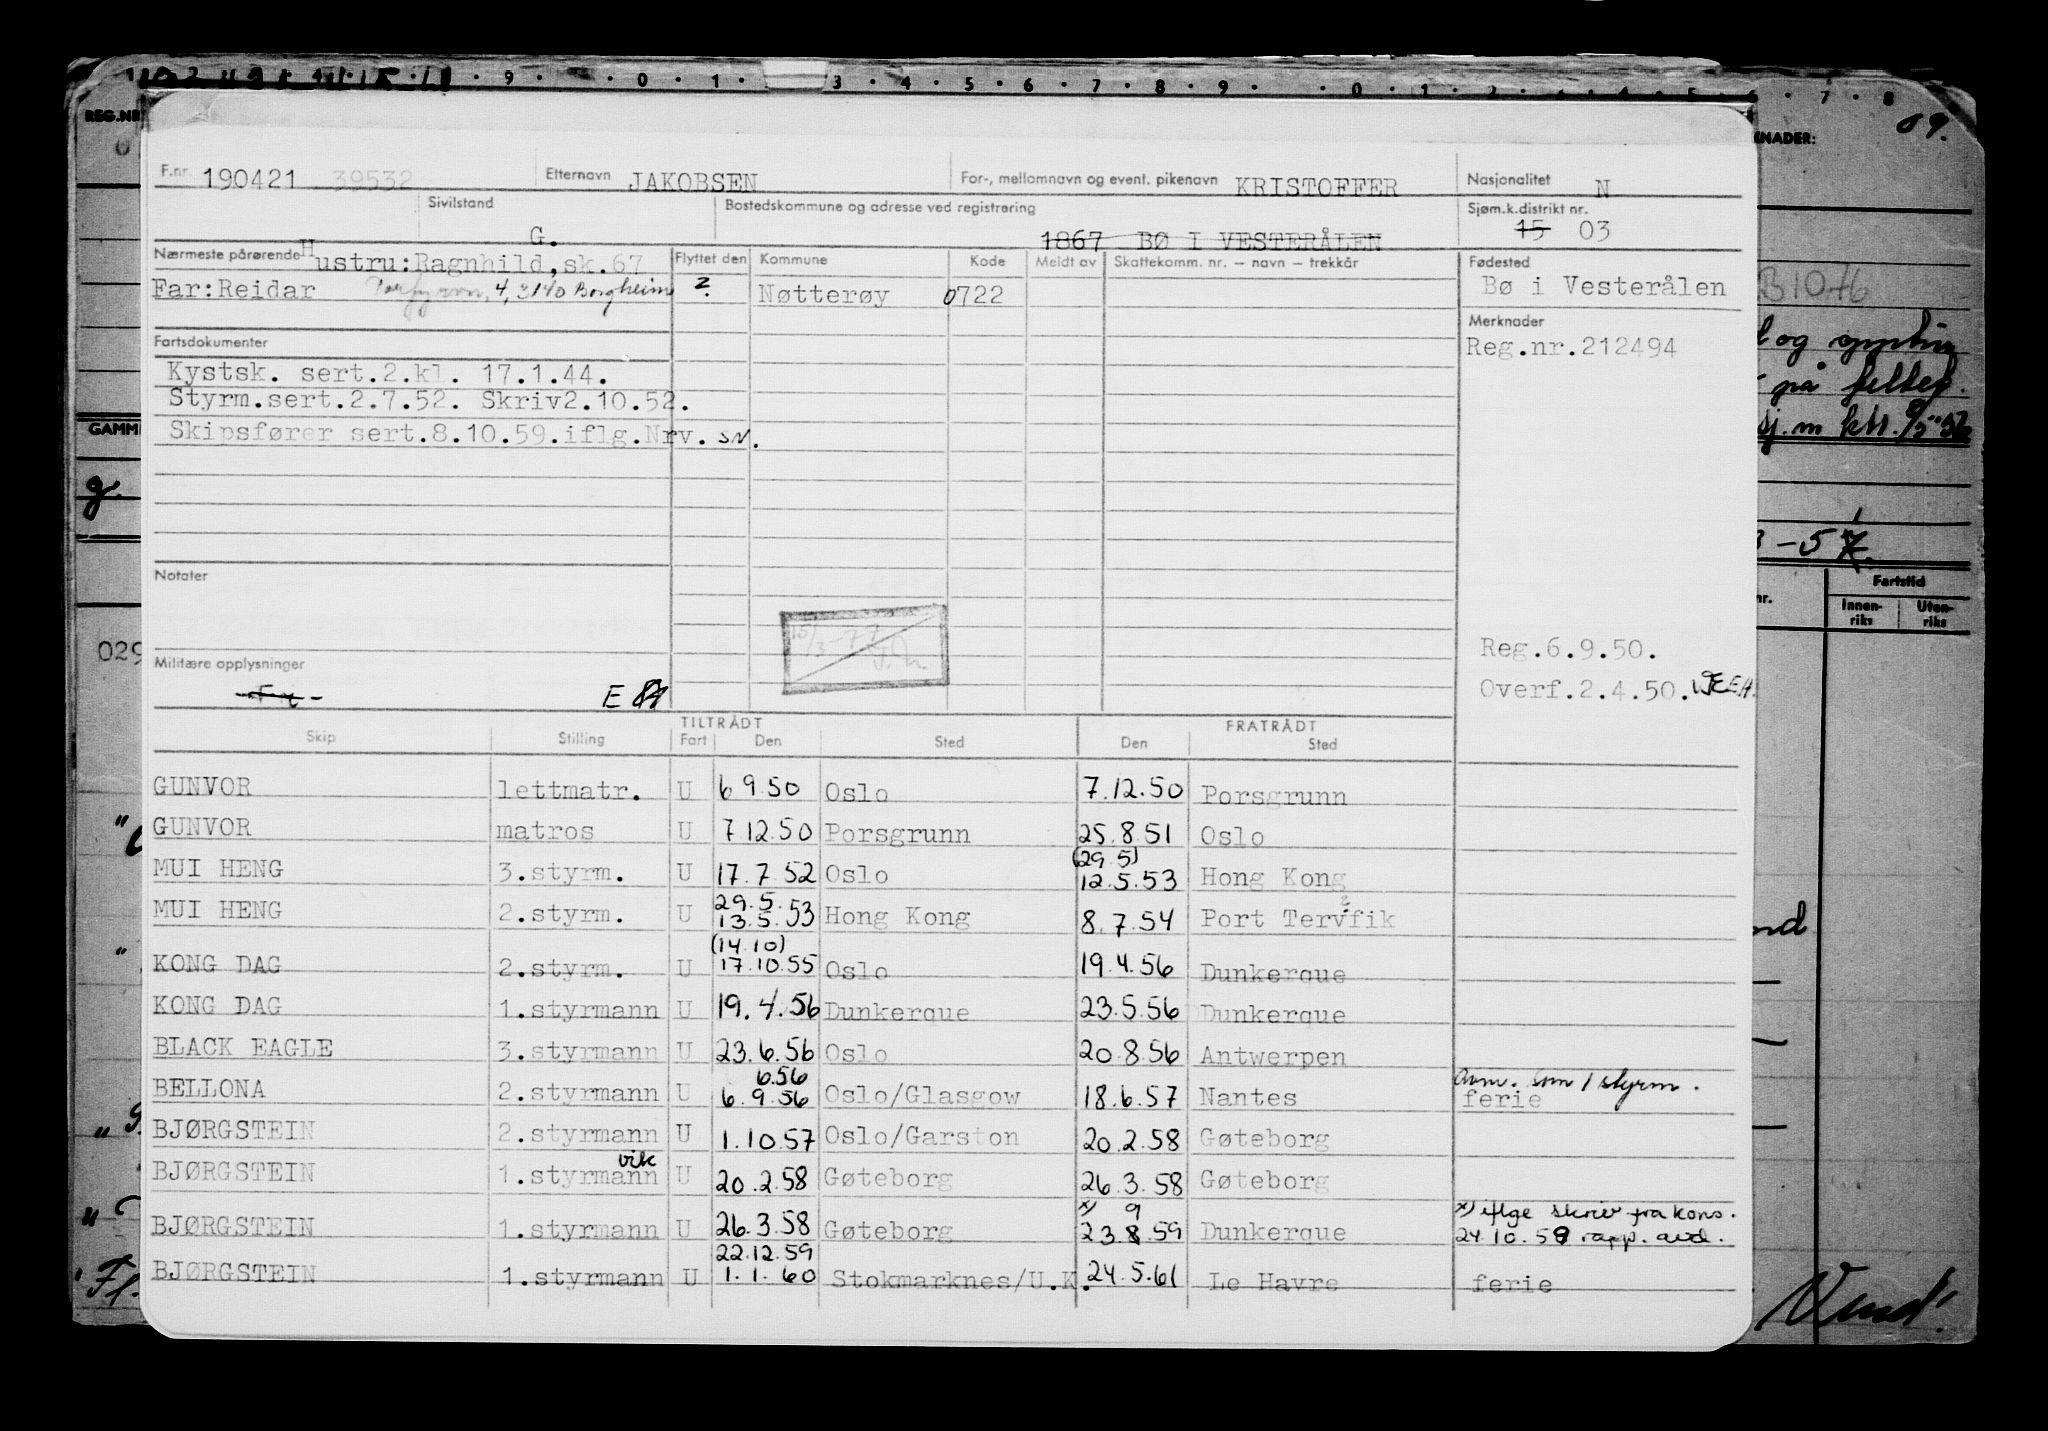 F.nr. 190421 39532 Etternavn JAKOBSEN For-, mellomnavn og event. pikenavn KRISTOFFER Nasjonalitet N
Sivilstand G. Bostedskommune og adresse ved registrering 1867 BØ I VESTERÅLEN Sjøm.k.distrikt nr. 15 03
Nærmeste pårørende Hustru: Ragnhild, sk. 67 Flyttet den Kommune Kode Meldt av Skattekomm. nr. – navn – trekkår Fødested
Far: Reidar 4, 3140 Borgheim ? Nøtterøy 0722 Bø i Vesterålen
Merknader
Fartsdokumenter Reg.nr.212494
Kystsk. sert.2.kl. 17.1.44.
Styrm.sert.2.7.52. Skriv2.10.52.
Skipsfører sert.8.10.59.iflg.Nrv. SN.
Notater
15/3-77
Reg.6.9.50.
Militære opplysninger
Overf.2.4.50.
E
TILTRÅDT FRATRÅDT
Skip Stilling Fart Den Sted Den Sted
GUNVOR lettmatr. U 6 9.50 Oslo 7.12.50 Porsgrunn
GUNVOR matros U 7 12.50 Porsgrunn 25.8.51 Oslo
(29.5)
MUI HENG 3.styrm. U 17.7.52 Oslo 12.5.53 Hong Kong
29.5.
MUI HENG 2.styrm. U 13.5.53 Hong Kong 8.7.54 Port Tervfik
(14.10)
KONG DAG 2.styrm. U 17.10.55 Oslo 19.4.56 Dunkerque
KONG DAG 1.styrmann U 19.4.56 Dunkerque 23.5.56 Dunkerque
BLACK EAGLE 3.styrmann U 23.6.56 Oslo 20.8.56 Antwerpen
6.56 avm. som 1 styrm.
BELLONA 2.styrmann U 6.9.56 Oslo/Glasgow 18.6.57 Nantes ferie
BJØRGSTEIN 2.styrmann U 1.10.57 Oslo/Garston 20.2.58 Gøteborg
vik
BJØRGSTEIN 1.styrmann U 20.2.58 Gøteborg 26.3.58 Gøteborg
x) 9 x) iflge skriv fra kons.
BJØRGSTEIN 1.styrmann U 26.3.58 Gøteborg 23.8.59 Dunkerque 24.10.59 rapp. avd.
22.12.59
BJØRGSTEIN 1.styrmann U 1.1.60 Stokmarknes/U.K. 24.5.61 Le Havre ferie
REG.NR
GAMM
g.
029
09.
KNADER:
B1076
på feltet.
Fartstid
Innen-riks Uten-riks
Vend!